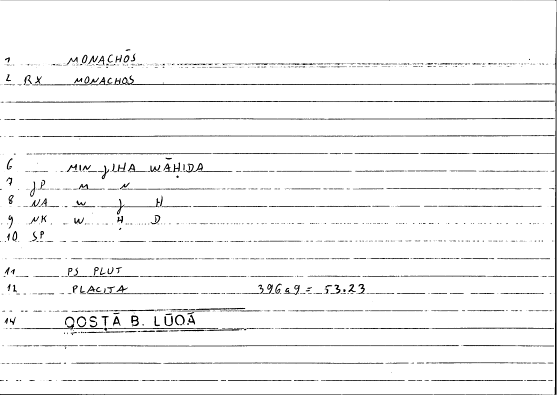 1 MONACHÓS
2 RX MONACHOS
6 MIN JIHA WĀḤIDA
7 JP M N
8 NA W J H
9 NK W Ḥ D
10 SP
11 PS PLUT
12 PLACITA 396a9 = 53.23
14 QOSṬĀ B. LŪQĀ